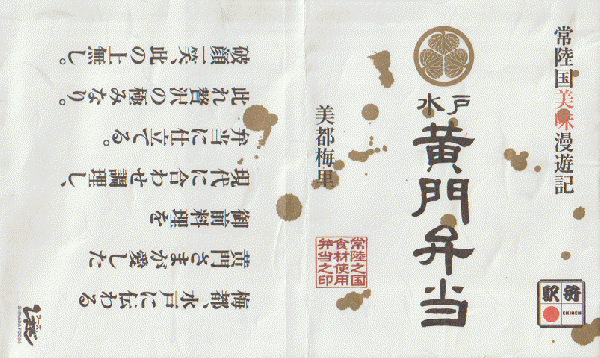 常陸国美味漫遊記
水戸
黄門弁当
美都梅里
常陸之国
食材使用
弁当之印
駅弁
EKIBEN
梅都、水戸に伝わる
黄門さまが愛した
御前料理を
現代に合わせ調理し、
弁当に仕立てる。
此れ贅沢の極みなり。
破顔一笑、此の上無し。